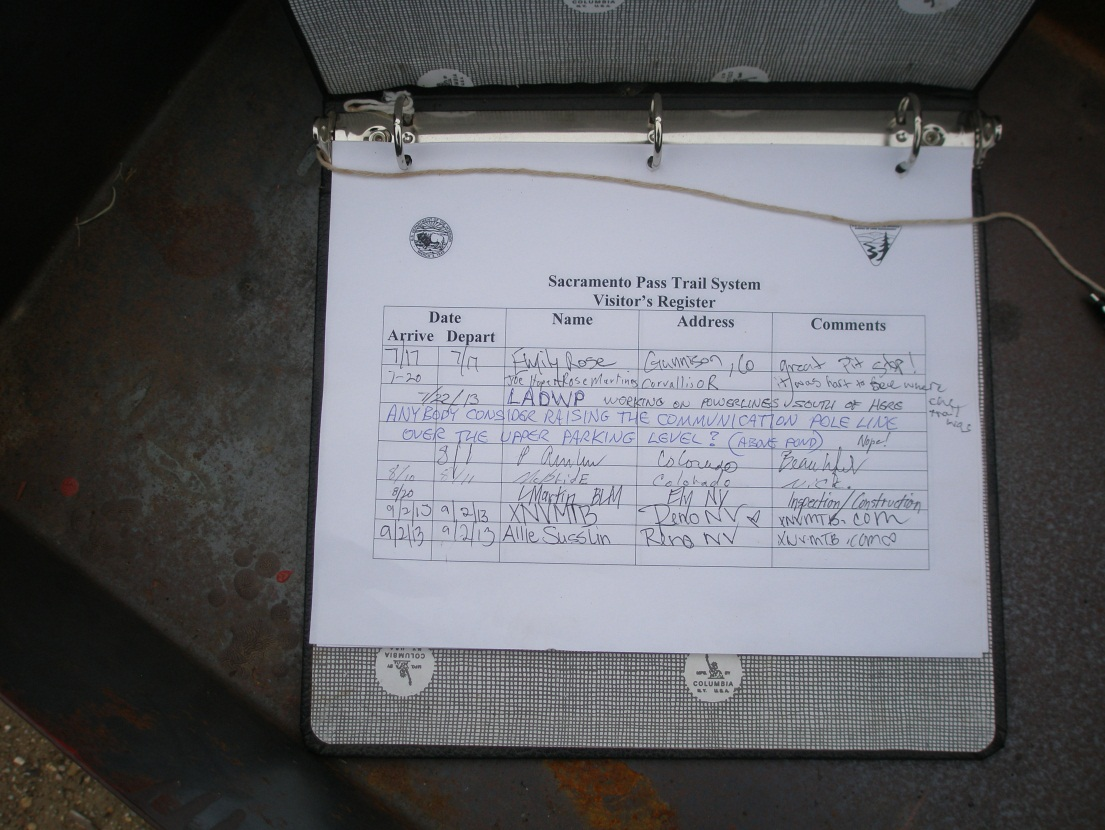 COLUMBIA
N.Y. U.S.A.
Sacramento Pass Trail System
Visitor's Register
Date
Arrive Depart Name Address Comments
7/17 7/17 Emily Rose Gunnison, Co great Pit stop!
7-20 Rose Martinez Corvallis OR it was hard to see where the trail was
7/22/13 LADWP WORKING ON POWERLINES SOUTH OF HERE
ANYBODY CONSIDER RAISING THE COMMUNICATION POLE LINE
OVER THE UPPER PARKING LEVEL? (ABOVE POND) Nope!
8/1 P Colorado Beautiful
8/10 8/11 McBride Colorado Nice.
8/20 Martin BLM Inspection/Construction
9/2/13 9/2/13 XNVMTB Reno NV XNVMTB.com
9/2/13 9/2/13 Allie Susslin Reno NV XNVMTB.com
MFG. BY
COLUMBIA
N.Y. U.S.A.
MFG. BY
COLUMBIA
N.Y. U.S.A.